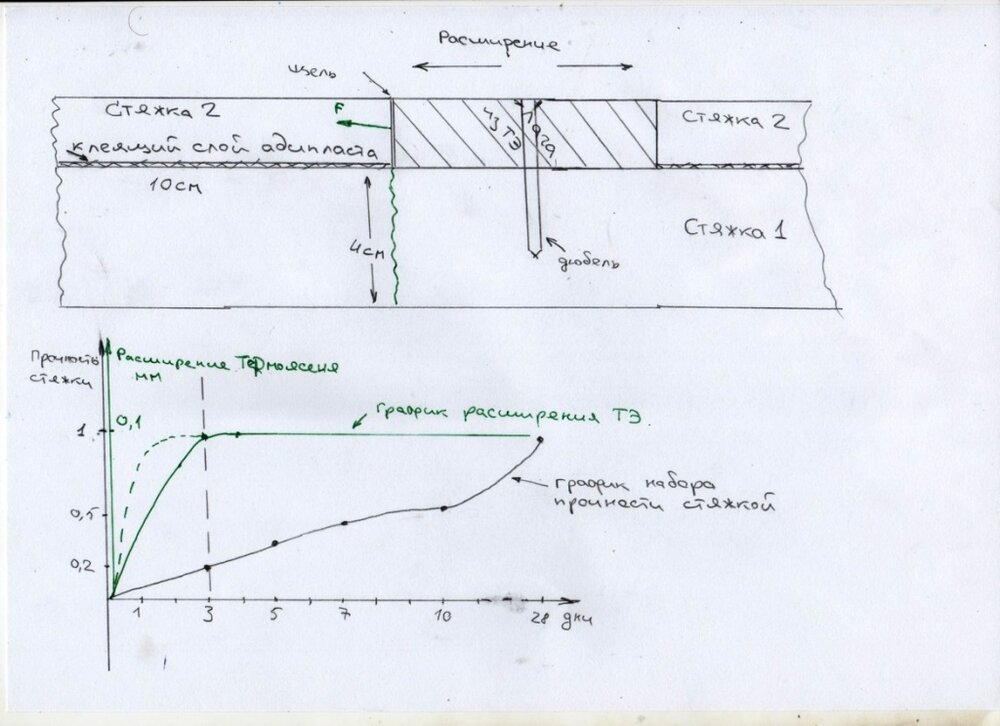 Расширение
щель
Стяжка 2
F
клеящий слой адипласта
10см
из ТЭ
лага
Стяжка 2
Стяжка 1
4см
дюбель
Прочность
стяжки
Расширение Термоясеня
мм
график расширения ТЭ.
1
0,1
график набора
прочности стяжкой
0,5
0,2
1
3
5
7
10
28
дни